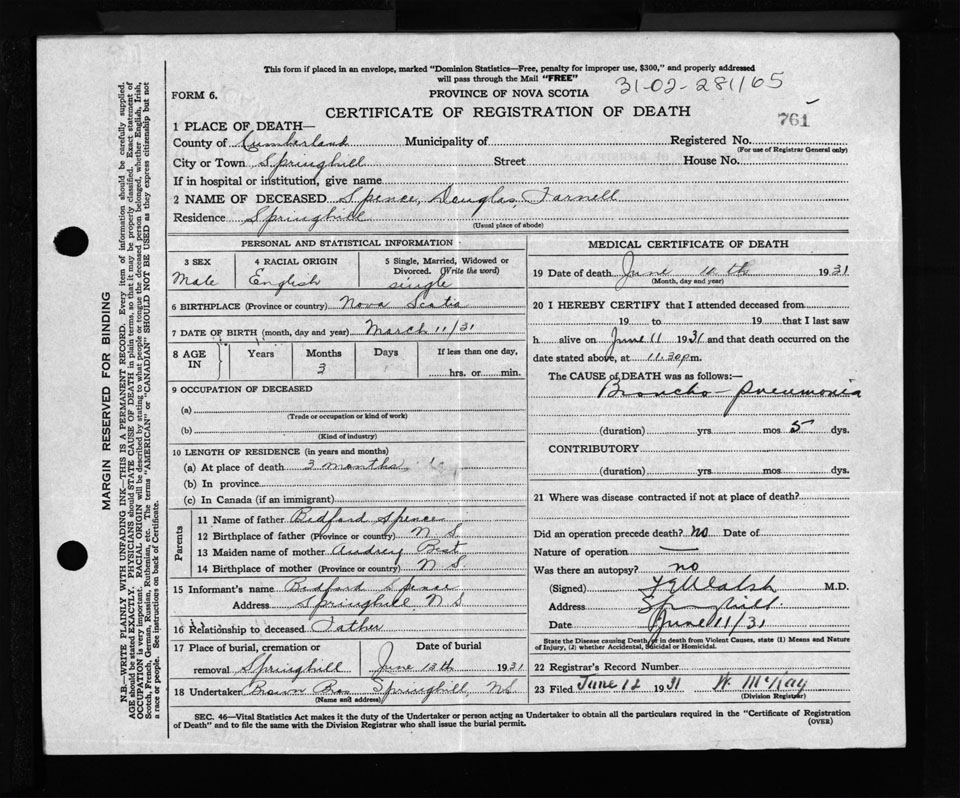 This form if placed in an envelope, marked "Dominion Statistics—Free, penalty for improper use, $300," and properly addressed
will pass through the Mail "FREE"
31-02-281165
FORM 6.
PROVINCE OF NOVA SCOTIA
CERTIFICATE OF REGISTRATION OF DEATH
761
1 PLACE OF DEATH—
County of Cumberland Municipality of Registered No.
(For use of Registrar General only)
City or Town Springhill Street House No.
If in hospital or institution, give name
2 NAME OF DECEASED Spence, Douglas, Farnell
Residence Springhill
(Usual place of abode)
PERSONAL AND STATISTICAL INFORMATION
3 SEX 4 RACIAL ORIGIN 5 Single, Married, Widowed or
Divorced. (Write the word)
Male English single
6 BIRTHPLACE (Province or country) Nova Scotia
7 DATE OF BIRTH (month, day and year) March 11/31
8 AGE IN Years Months Days If less than one day,
3
hrs. or min.
9 OCCUPATION OF DECEASED
(a)
(Trade or occupation or kind of work)
(b)
(Kind of industry)
10 LENGTH OF RESIDENCE (in years and months)
(a) At place of death 3 months
(b) In province
(c) In Canada (if an immigrant)
Parents
11 Name of father Bedford Spence
12 Birthplace of father (Province or country) N S.
13 Maiden name of mother Audrey Best
14 Birthplace of mother (Province or country) N S.
15 Informant's name Bedford Spence
Address Springhill N S
16 Relationship to deceased Father
17 Place of burial, cremation or Date of burial
removal Springhill June 13th 1931
18 Undertaker Brown Bros Springhill, NS
(Name and address)
MEDICAL CERTIFICATE OF DEATH
19 Date of death June 1931
(Month, day and year)
20 I HEREBY CERTIFY that I attended deceased from
19 to 19 that I last saw
h alive on June 11 1931 and that death occurred on the
date stated above, at 11.30 p.m.
The CAUSE of DEATH was as follows:—
Broncho-pneumonia
(duration) yrs mos 5 dys.
CONTRIBUTORY
(duration) yrs mos dys.
21 Where was disease contracted if not at place of death?
Did an operation precede death? no Date of
Nature of operation —
Was there an autopsy? no
(Signed) Walsh M.D.
Address Springhill.
Date June 11/31
State the Disease causing Death, or in death from Violent Causes, state (1) Means and Nature
of Injury, (2) whether Accidental, Suicidal or Homicidal.
22 Registrar's Record Number
23 Filed June 12 1931 W. McKay
(Division Registrar)
SEC. 46—Vital Statistics Act makes it the duty of the Undertaker or person acting as Undertaker to obtain all the particulars required in the "Certificate of Registration
of Death" and to file the same with the Division Registrar who shall issue the burial permit.
(OVER)
MARGIN RESERVED FOR BINDING
N.B.—WRITE PLAINLY WITH UNFADING INK—THIS IS A PERMANENT RECORD. Every item of information should be carefully supplied.
AGE should be stated EXACTLY. PHYSICIANS should STATE CAUSE OF DEATH in plain terms, so that it may be properly classified. Exact statement of
OCCUPATION is very important. RACIAL ORIGIN will be described by stating to what people or tongue the deceased person belonged, whether English, Irish,
Scotch, French, German, Russian, Ruthenian, etc. The terms "AMERICAN" or "CANADIAN" SHOULD NOT BE USED as they express citizenship but not
a race or people. See instructions on back of Certificate.